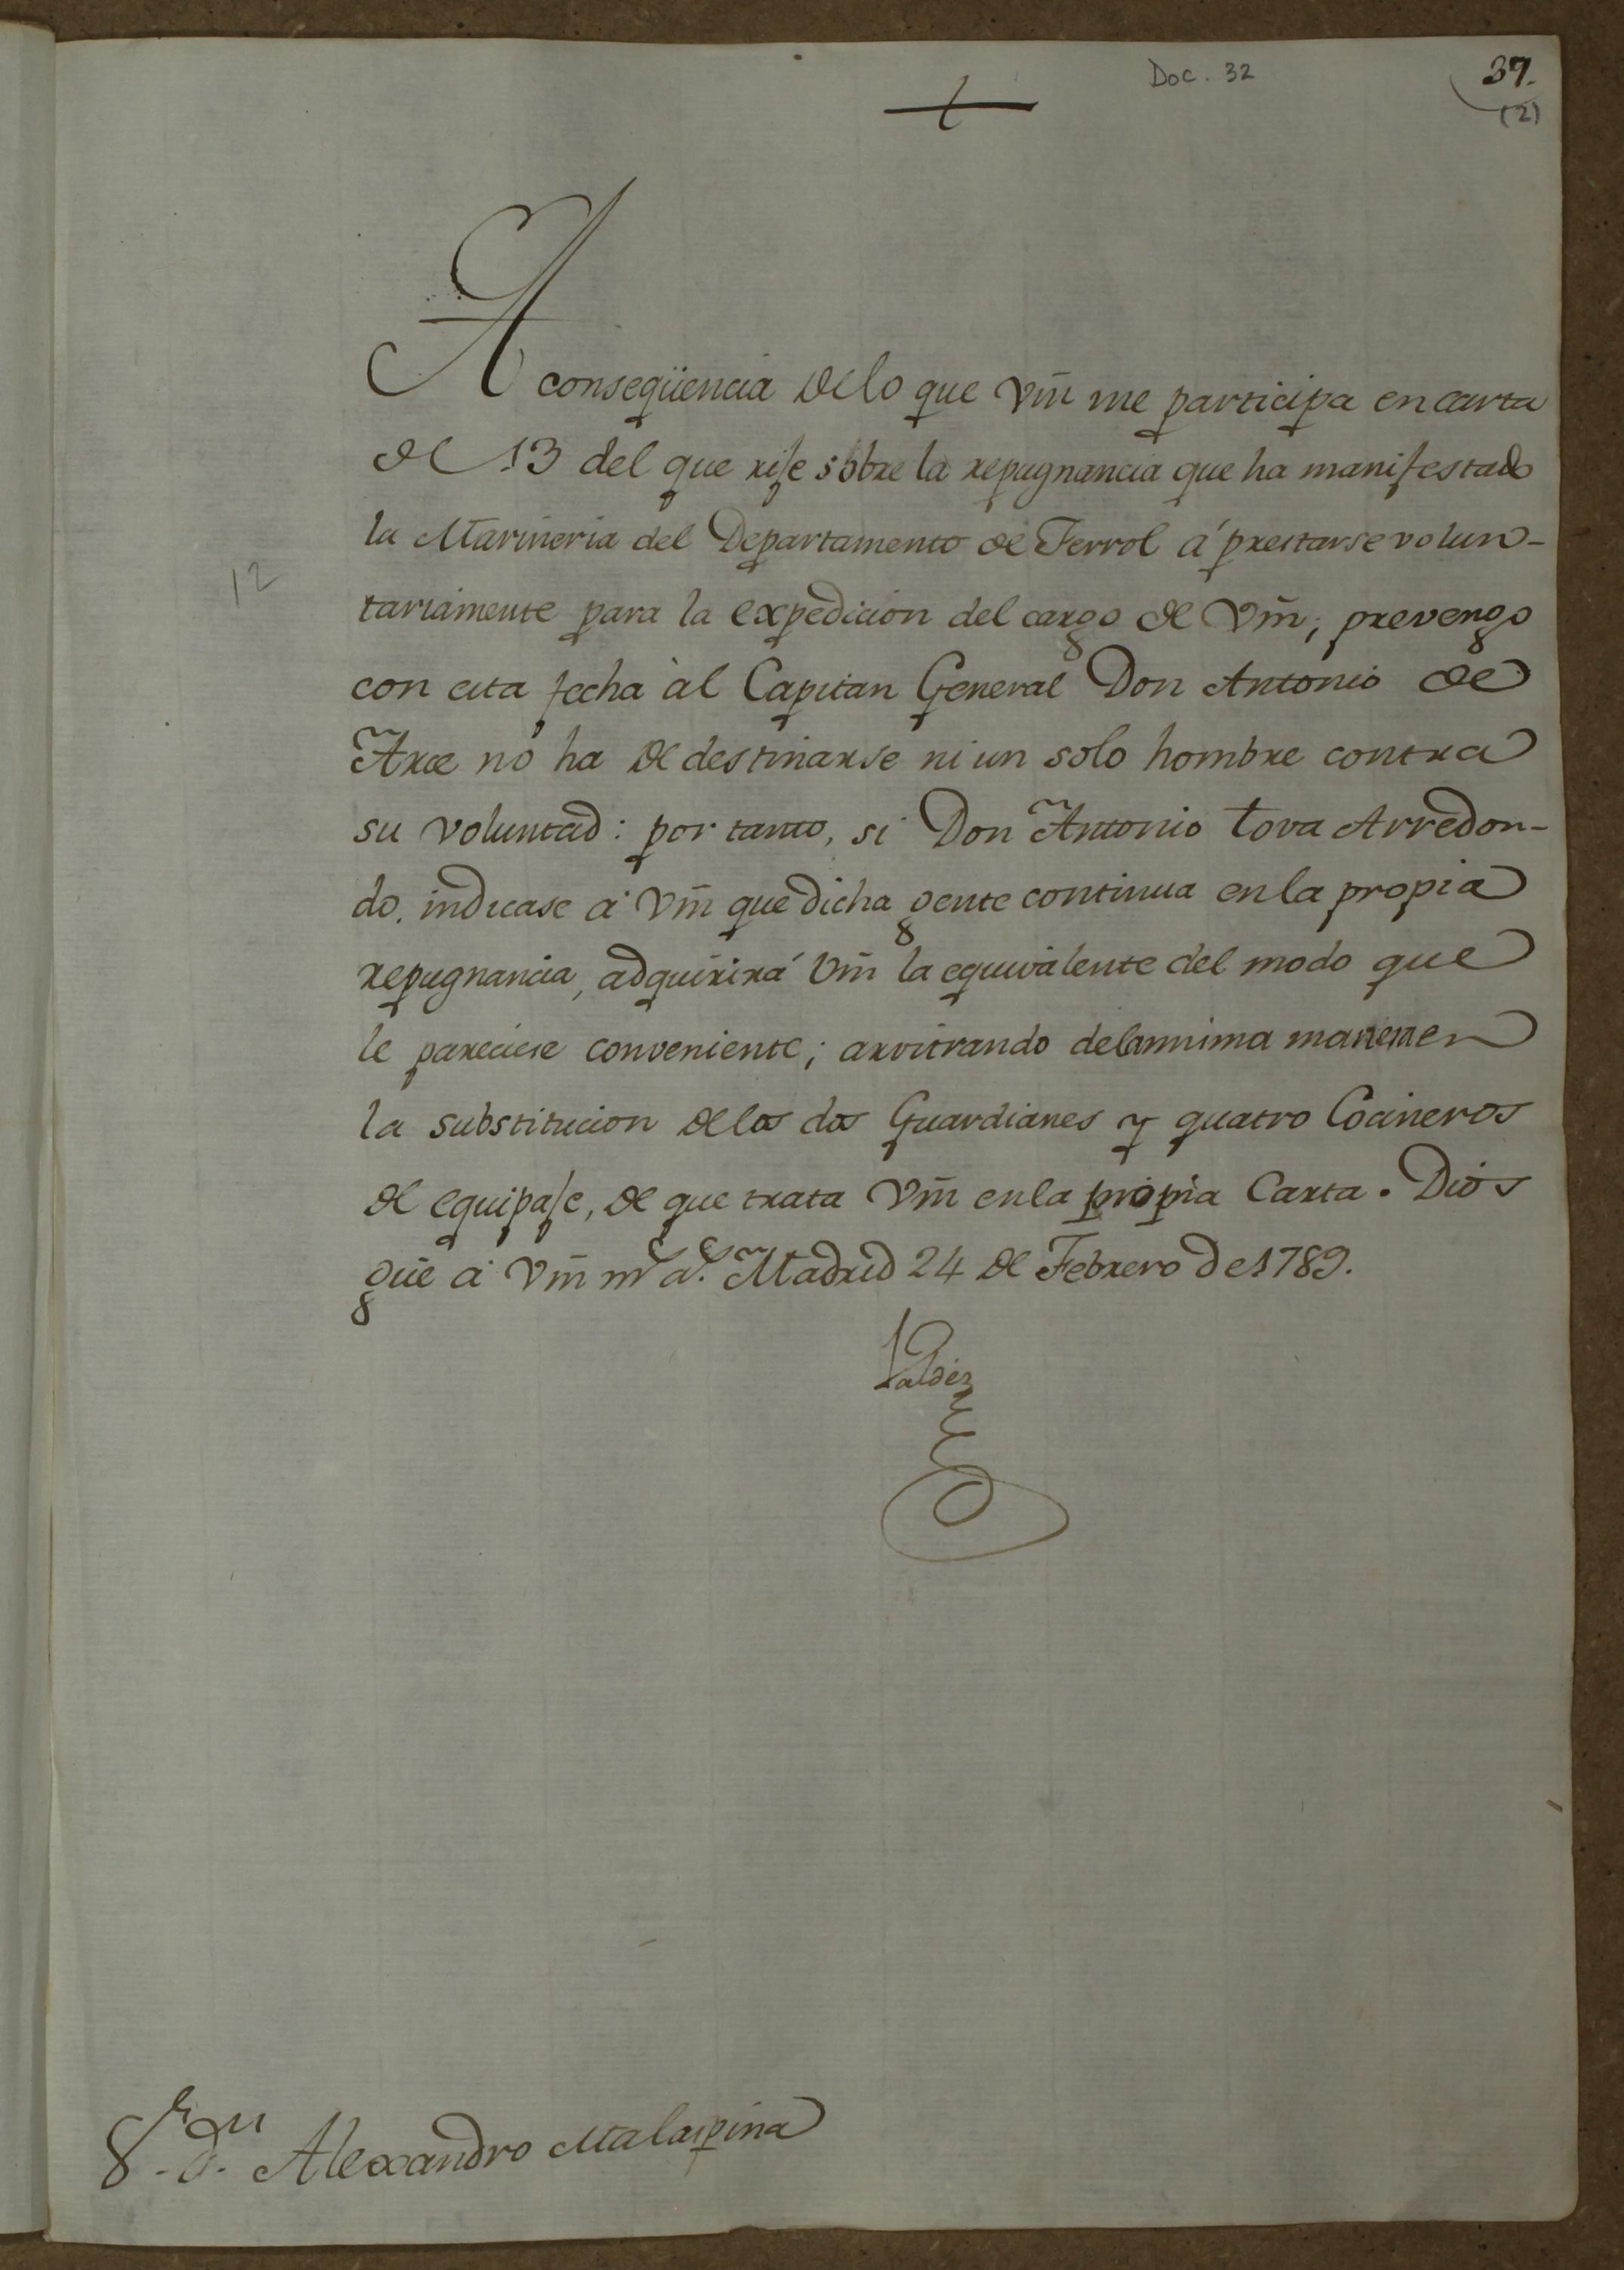 Doc. 32
37.
(2)
A conseqüencia de lo que Vm̃ me participa en carta
de 13 del que rije sobre la repugnancia que ha manifestado
la Marineria del Departamento de Ferrol á prestarse volun-
12
tariamente para la expedicion del cargo de Vm̃; prevengo
con esta fecha al Capitan General Don Antonio de
Arce no ha de destinarse ni un solo hombre contra
su voluntad: por tanto, si Don Antonio Tova Arredon-
do, indicase á Vm̃ que dicha gente continua en la propia
repugnancia, adquirirá Vm̃ la equivalente del modo que
le pareciese conveniente; arvitrando de la misma manera en
la substitucion de los dos Guardianes y quatro Cocineros
de equipaje, de que trata Vm̃ en la propia Carta. Dios
güe á Vm̃ mˢ aˢ. Madrid 24 de Febrero de 1789.
Valdés
S.ʳ D.ⁿ Alexandro Malaspina